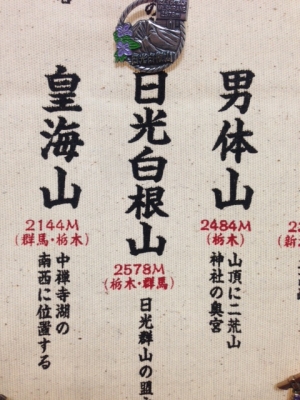 男体山
2484M
(栃木)
山頂に二荒山
神社の奥宮
日光白根山
2578M
(栃木・群馬)
日光群山の盟
皇海山
2144M
(群馬・栃木)
中禅寺湖の
南西に位置する